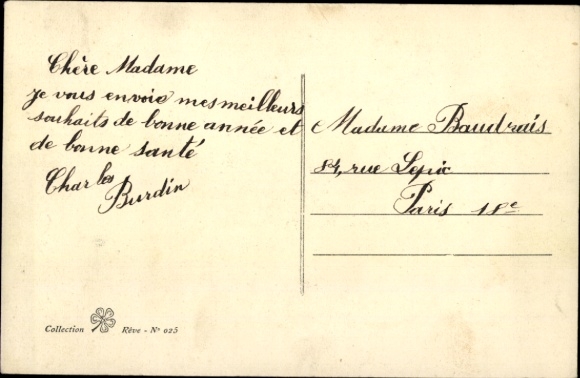 Chère Madame
je vous envoie mes meilleurs
souhaits de bonne année et
de bonne santé
Charles
Burdin
Madame Baudrais
84, rue Lepic
Paris 18e
Collection Rêve - No 025